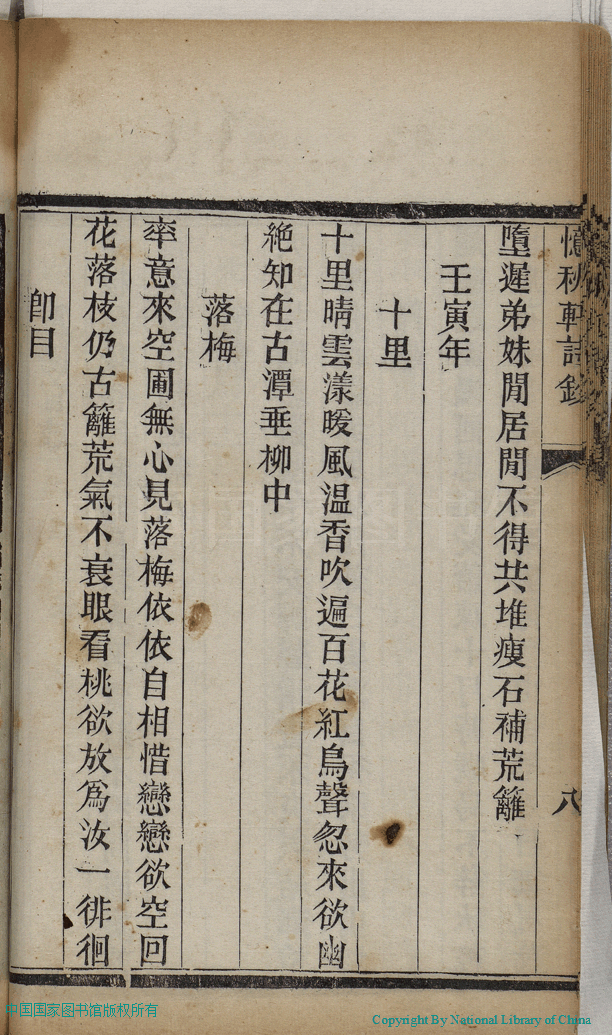 憶秋軒詩鈔
八
墮遲弟妹閒居閒不得共堆瘦石補荒籬
壬寅年
十里
十里晴雲漾暖風温香吹遍百花紅鳥聲忽來欲幽
絶知在古潭垂柳中
落梅
率意來空圃無心見落梅依依自相惜戀戀欲空回
花落枝仍古籬荒氣不衰眼看桃欲放爲汝一徘徊
卽目
中国国家图书馆版权所有
Copyright By National Library of China